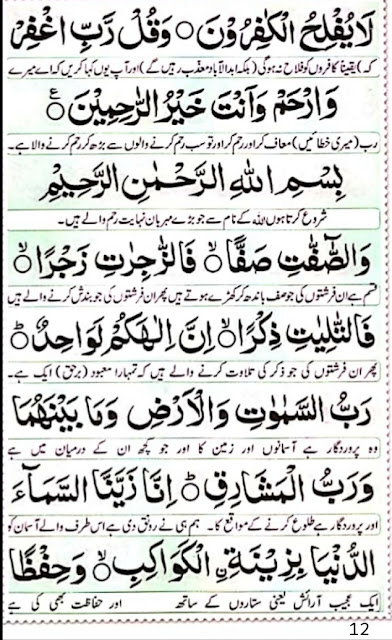 لَا يُفْلِحُ الْكٰفِرُوْنَ ○ وَقُلْ رَّبِّ اغْفِرْ
کہ) یقیناً کافروں کو فلاح نہ ہوگی (بلکہ ابد الآباد معذب رہیں گے) اور آپ یوں کہا کریں کہ اے میرے
وَارْحَمْ وَاَنْتَ خَيْرُ الرّٰحِمِيْنَ ○ ع
رب (میری خطائیں) معاف کر اور رحم کر اور تو سب رحم کرنے والوں سے بڑھ کر رحم کرنے والا ہے۔
بِسْمِ اللهِ الرَّحْمٰنِ الرَّحِيْمِ
شروع کرتا ہوں اللہ کے نام سے جو بڑے مہربان نہایت رحم والے ہیں۔
وَالصّٰٓفّٰتِ صَفًّا ○ۙ فَالزّٰجِرٰتِ زَجْرًا ○ۙ
قسم ہے ان فرشتوں کی جو صف باندھ کر کھڑے ہوتے ہیں پھر ان فرشتوں کی جو بندش کرنے والے ہیں
فَالتّٰلِيٰتِ ذِكْرًا ○ۙ اِنَّ اِلٰهَكُمْ لَوَاحِدٌ ○ؕ
پھر ان فرشتوں کی جو ذکر کی تلاوت کرنے والے ہیں کہ تمہارا معبود (برحق) ایک ہے۔
رَبُّ السَّمٰوٰتِ وَالْاَرْضِ وَمَا بَيْنَهُمَا
وہ پروردگار ہے آسمانوں اور زمین کا اور جو کچھ ان کے درمیان میں ہے
وَرَبُّ الْمَشَارِقِ ○ؕ اِنَّا زَيَّنَّا السَّمَآءَ
اور پروردگار ہے طلوع کرنے کے مواقع کا۔ ہم ہی نے رونق دی ہے اس طرف والے آسمان کو
الدُّنْيَا بِزِيْنَةِ ۨالْكَوَاكِبِ ○ۙ وَحِفْظًا
ایک عجیب آرائش یعنی ستاروں کے ساتھ اور حفاظت بھی کی ہے
12